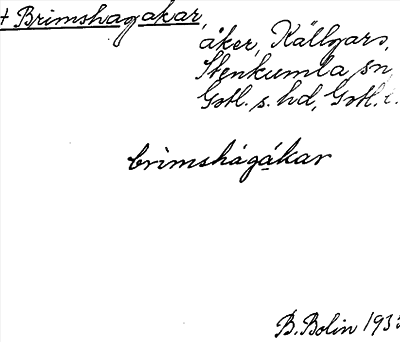 + Brimshagakar,
åker, Källgårs,
Stenkumla sn,
Gotl. s. hd, Gotl. l.
brimshágákar
B. Bolin